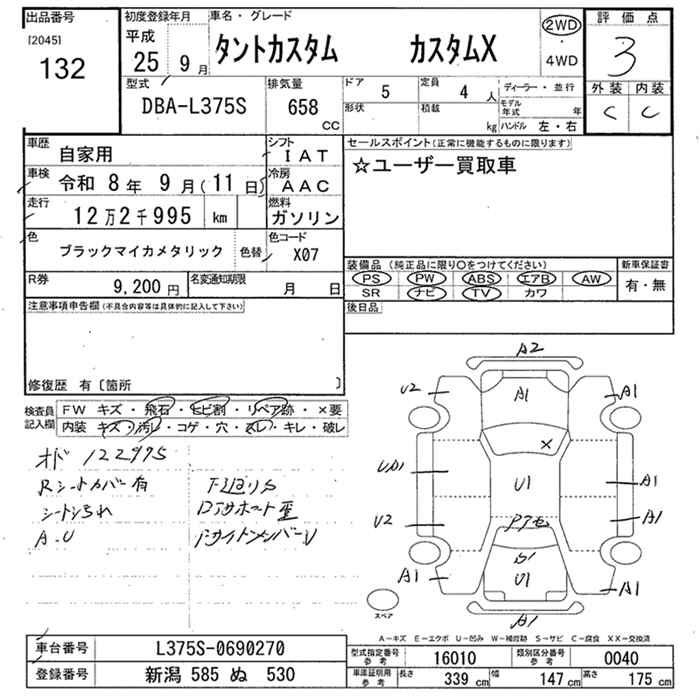 出品番号
[2045]
132
初度登録年月
平成
25 9 月
車名・グレード
タントカスタム カスタムX
2WD
・
4WD
評価点
3
外装 内装
C C
型式
DBA-L375S
排気量
658
CC
ドア
5
定員
4 人
形状
積載
kg
ディーラー・並行
モデル年式 年
ハンドル 左・右
車歴
自家用
シフト
IAT
車検
令和 8 年 9 月 (11 日)
冷房
AAC
走行
12 万 2 千 995 km
燃料
ガソリン
色
ブラックマイカメタリック
色替
色コード
X07
R券
9,200 円
名変通知期限
月 日
セールスポイント(正常に機能するものに限ります)
☆ユーザー買取車
装備品 (純正品に限り○をつけてください)
PS PW ABS エアB AW
SR ナビ TV カワ
新車保証書
有・無
後日品
注意事項申告欄(不具合内容等は具体的に記入して下さい)
修復歴 有〔箇所 〕
検査員
記入欄
FW キズ・飛石・ヒビ割・リペア跡・×要
内装 キズ・汚レ・コゲ・穴・スレ・キレ・破レ
オド 122995
Rシートカバー有
シートシミ汚れ
A.U
下廻りS
サイドメンバーU
A2
U2
A1
A1
×
U,A1
U1
A1
U2
A1
S1
A1
U1
A1
A1
スペア
A-キズ E-エクボ U-凹み W-補修跡 S-サビ C-腐食 XX-交換済
車台番号
L375S-0690270
登録番号
新潟 585 ぬ 530
型式指定番号
参考
16010
類別区分番号
参考
0040
車庫証明用
参考
長さ 339 cm
幅 147 cm
高さ 175 cm